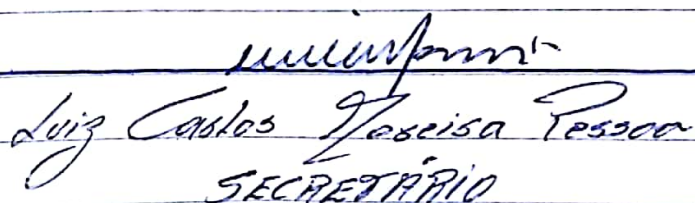 Luiz Carlos Moreira Pessoa
SECRETÁRIO